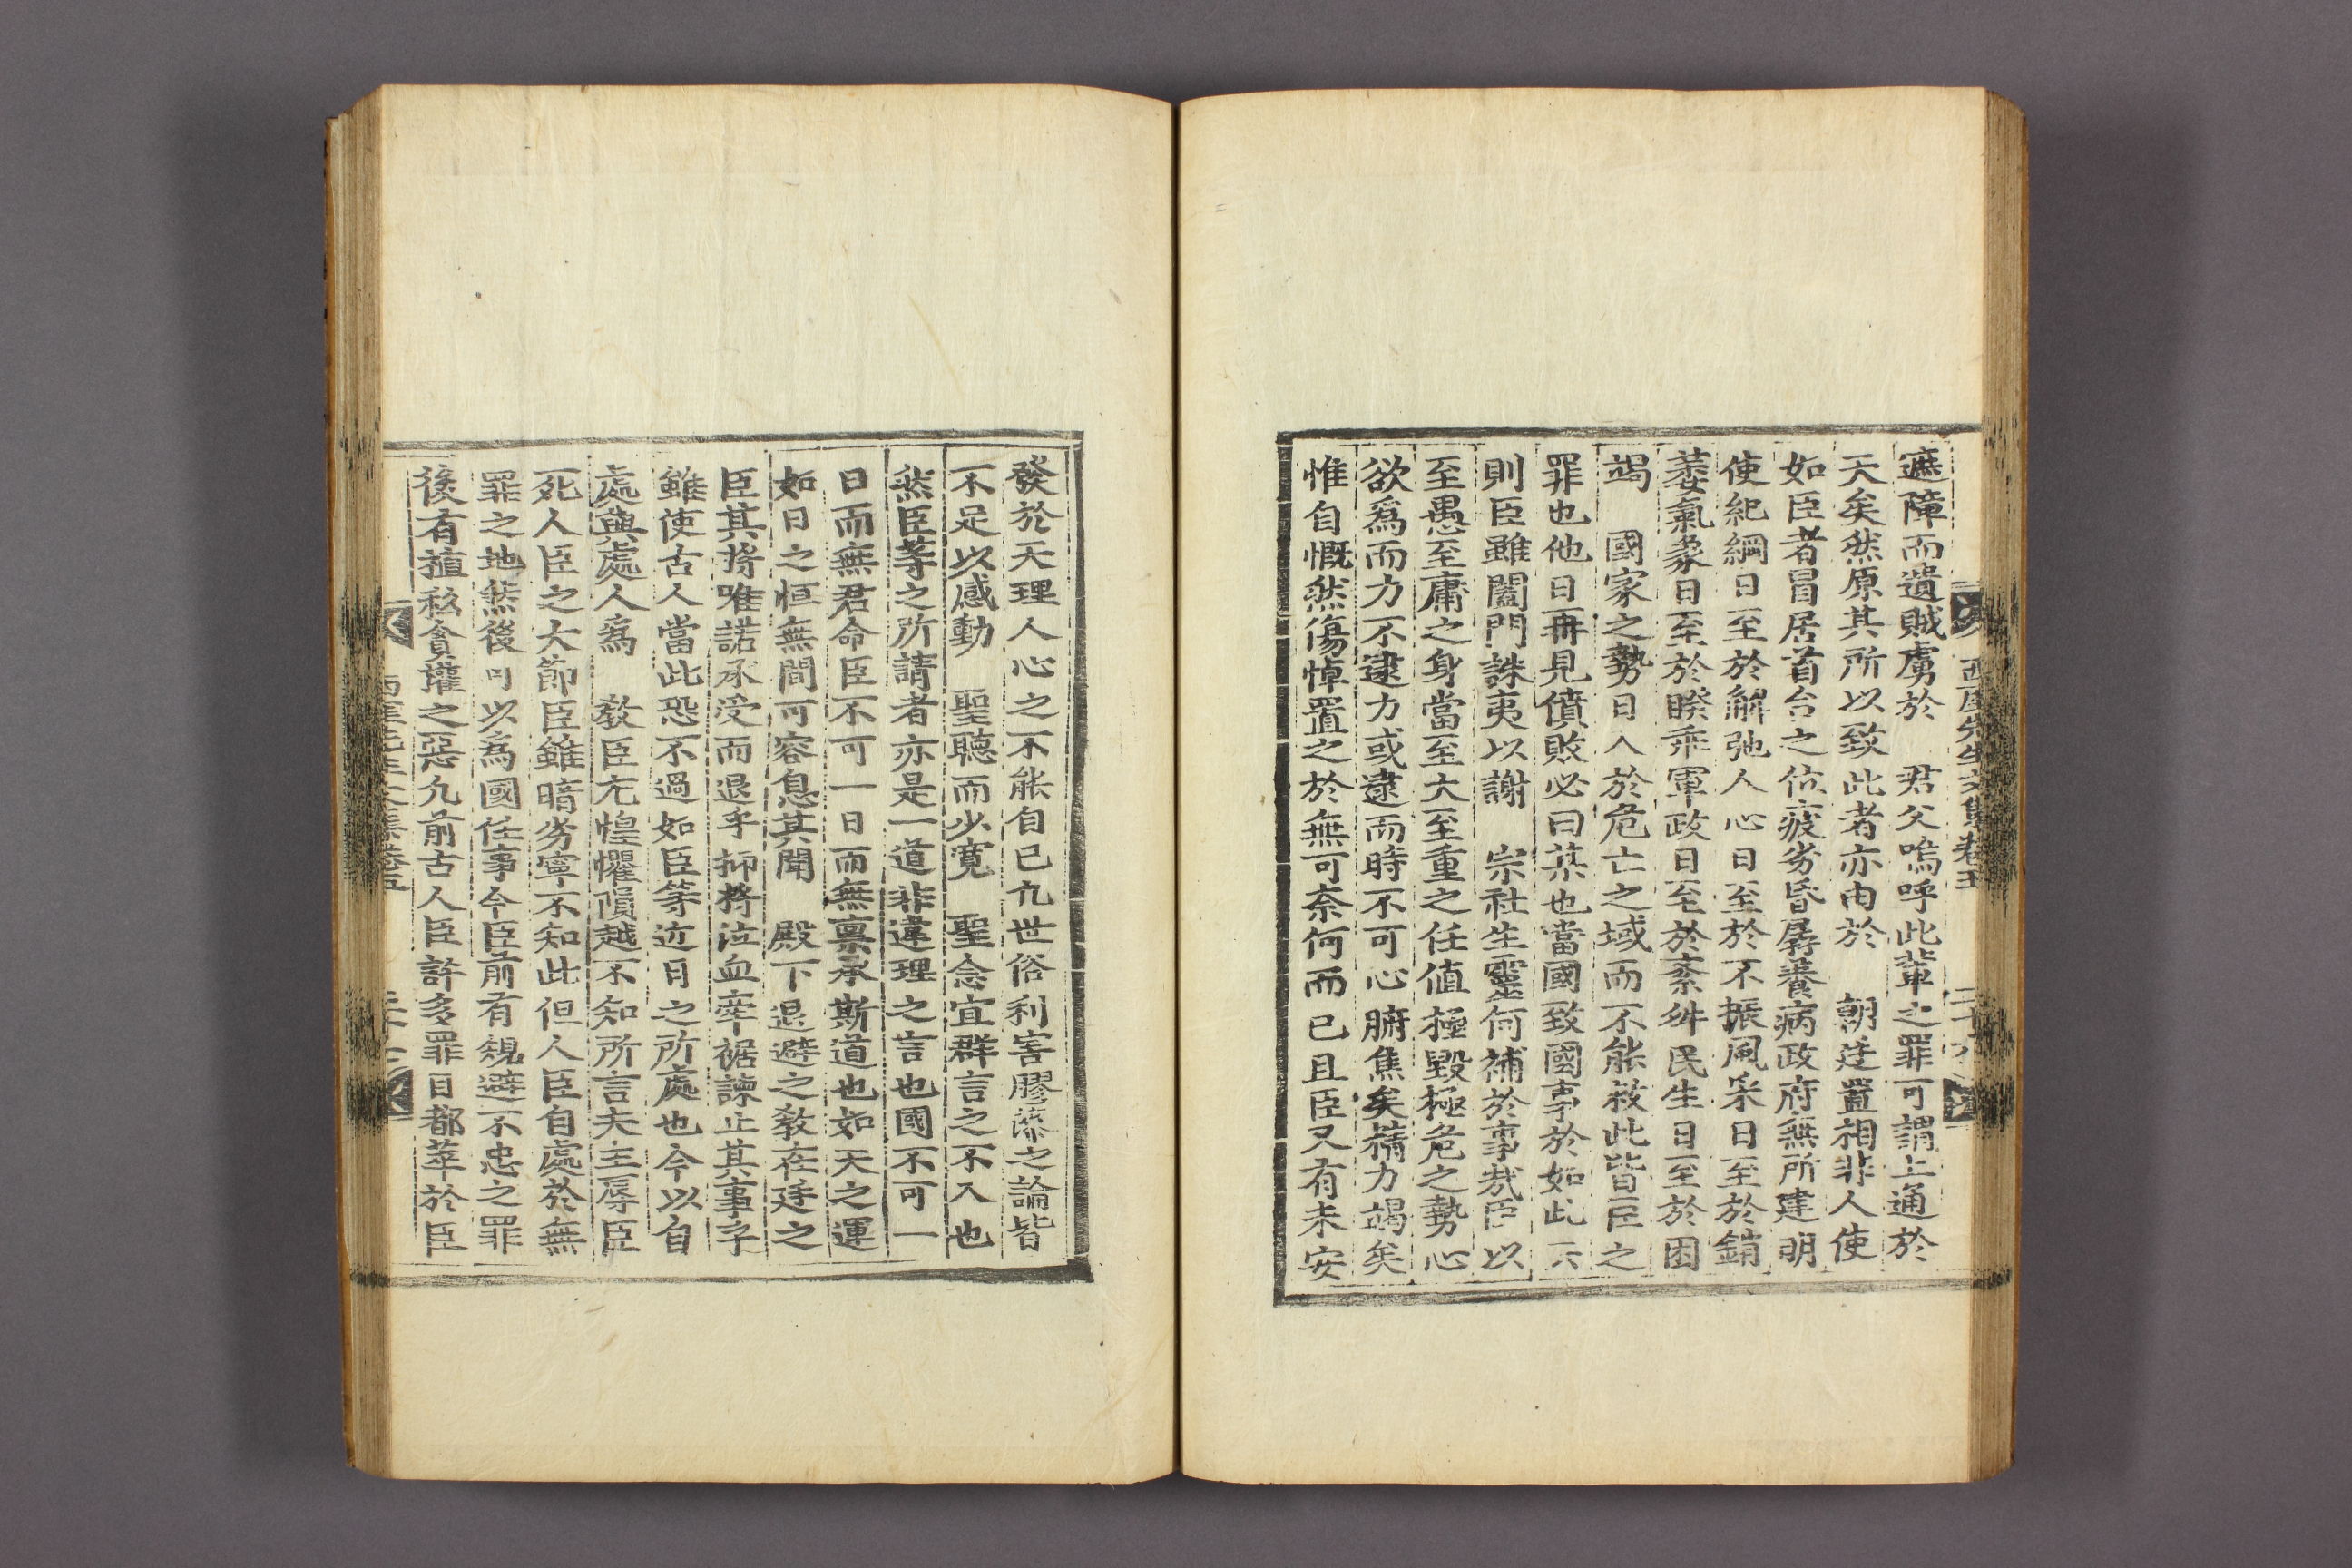 遮障而遺賊虜於　君父嗚呼此輩之罪可謂上通於
天矣然原其所以致此者亦由於　朝廷置相非人使
如臣者冒居首台之位疲劣昏孱養病政府無所建明
使紀綱日至於解弛人心日至於不振風采日至於銷
萎氣象日至於睽乖軍政日至於紊舛民生日至於困
竭　國家之勢日入於危亡之域而不能救此皆臣之
罪也他日再見僨敗必曰某也當國致國事於如此云
則臣雖闔門誅夷以謝　宗社生靈何補於事哉臣以
至愚至庸之身當至大至重之任值極毀極危之勢心
欲爲而力不逮力或逮而時不可心腑焦矣精力竭矣
惟自慨然傷悼置之於無可柰何而已且臣又有未安
西厓先生文集卷五
發於天理人心之不能自已凡世俗利害膠㓒之論皆
不足以感動　聖聽而少寬　聖念宜群言之不入也
然臣等之所請者亦是一道非違理之言也國不可一
日而無君命臣不可一日而無稟承斯道也如天之運
如日之恒無間可容息其聞　殿下退避之敎在廷之
臣其將唯諾承受而退乎抑將泣血牽裾諫止其事乎
雖使古人當此恐不過如臣等近日之所處也今以自
處與處人爲　敎臣尤惶懼隕越不知所言夫主辱臣
死人臣之大節臣雖暗劣寧不知此但人臣自處於無
罪之地然後可以爲國任事今臣前有規避不忠之罪
後有植私貪權之惡凡前古人臣許多罪目都萃於臣
西厓先生文集卷五